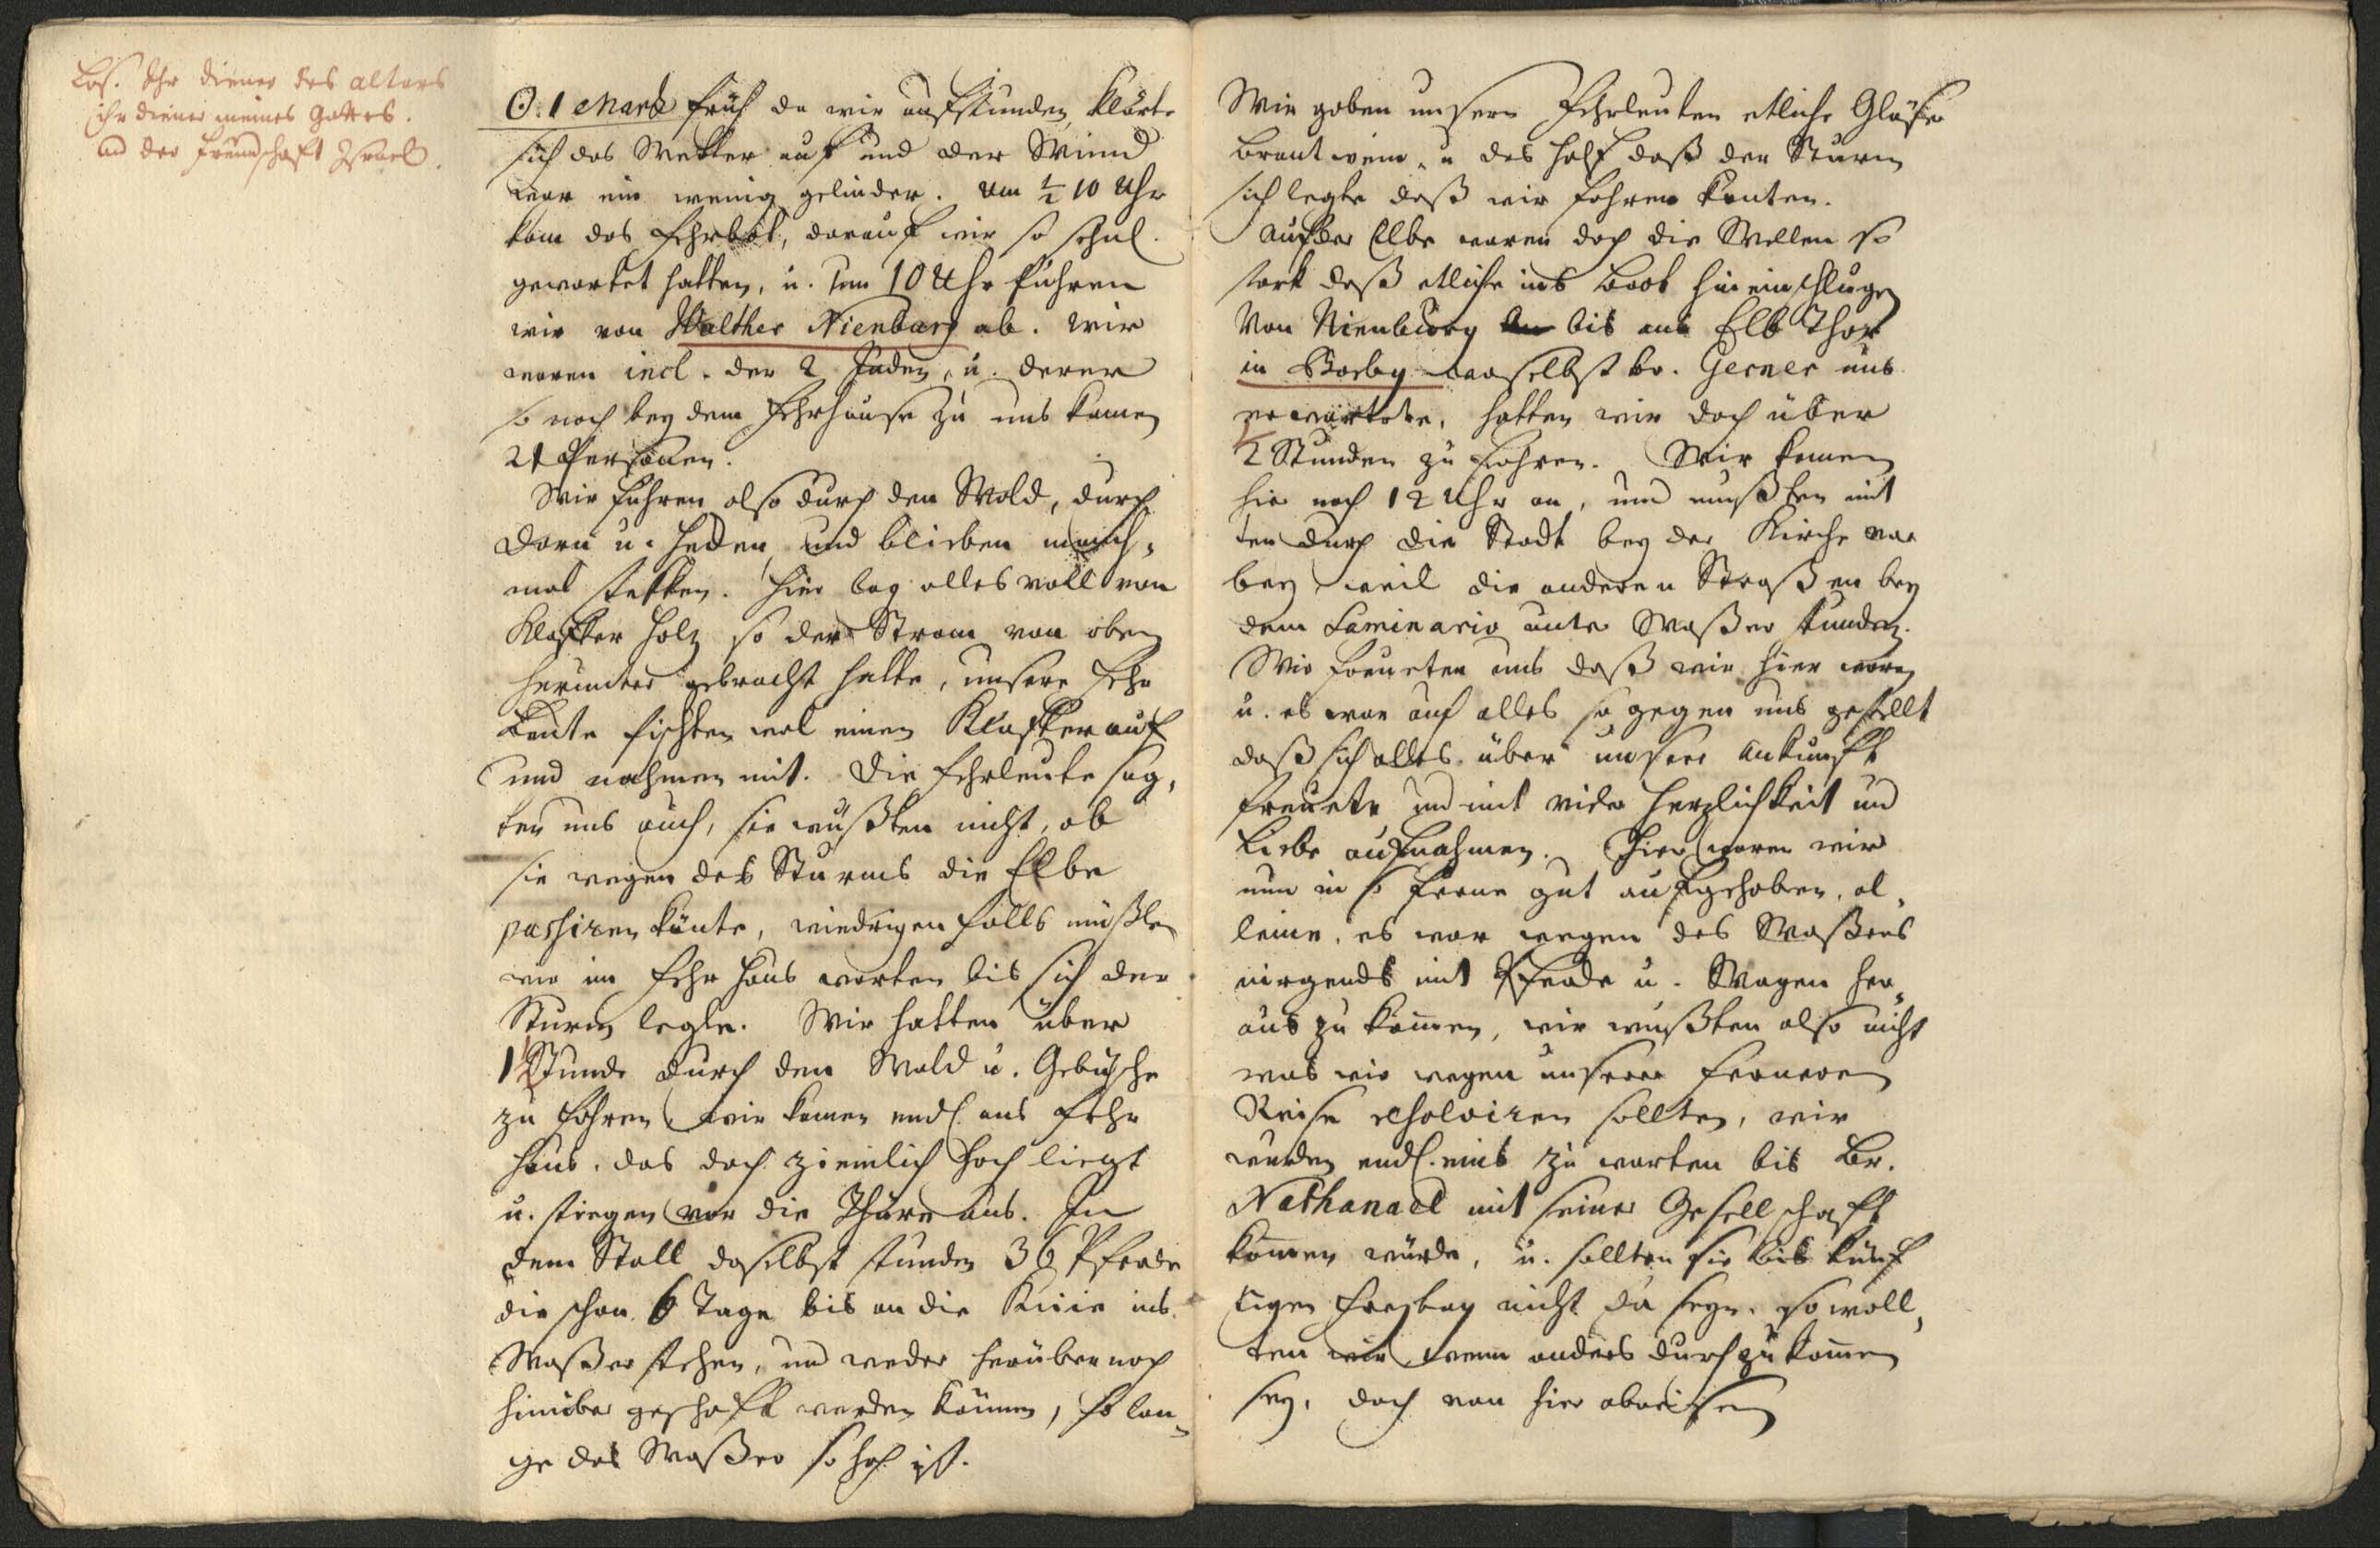 Los. Ihr diener des altars
ihr diener meines Gottes.
an der freundschaft Israel.
☉. 1 Martz früh da wir aufstunden, klärte
sich das Wetter auf und der Wind
war ein wenig gelinder. Um ½ 10 Uhr
kam das Fehrbot, darauf wir so sehnl.
gewartet hatten, u. um 10 Uhr fuhren
wir von Walther Nienburg ab. Wir
waren incl. der 2 Juden, u. derer
so noch bey dem Fehrhause zu uns kamen
21 Personen.
Wir fuhren also durch den Wald, durch
Dorn u. Hecken, und blieben manch-
mal stekken. Hier lag alles voll von
Klafter Holz so der Strom von oben
herunter gebracht hatte, unsere Fehr
Leute fischten wol einen Klafter auf
und nahmen mit. Die Fehrleute sag-
ten uns auch, sie wußten nicht, ob
sie wegen des Sturms die Elbe
passiren könte, wiedrigen falls müßten
wir im Fehr Haus warten bis sich der
Sturm legte. Wir hatten über
1½ Stunde durch den Wald u. Gebüsche
zu fahren wir kamen endl. ans Fehr
haus, das doch ziemlich hoch liegt
u. stiegen vor die Thüre aus. In
dem Stall daselbst stunden 36 Pferde
die schon 6 Tage bis an die Kniee ins
Waßer stehen, und weder herüber noch
hinüber geschaft werden können, so lan-
ge das Waßer so hoch ist.
Wir gaben unsern Fehrleuten etliche Gläser
Brantwein, u das half daß der Sturm
sich legte daß wir fahren konten.
Auf der Elbe waren doch die Wellen so
stark daß etliche ins Boot hineinschlugen
Von Nienburg bis ans Elb Thor
in Barby woselbst br. Gerner uns
erwartete, hatten wir doch über
2 Stunden zu fahren. Wir kamen
hie nach 12 Uhr an, und mußten mit
ten durch die Stadt bey der Kirche vor
bey weil die anderen Straßen bey
dem Seminario unter Waßer stunden.
Wir freueten uns daß wir hier waren
u. es war auch alles so gegen uns gestellt
daß sich alles über unsere Ankunft
freuete und mit vieler Herzlichkeit und
Liebe aufnahmen. Hier waren wir
nun in so ferne gut aufgehoben, al-
leine, es war wegen des Waßers
nirgends mit Pferde u. Wagen her-
aus zu kommen, wir wußten also nicht
was wir wegen unserer ferneren
Reise resolviren sollten, wir
wurden endl. eins zu warten bis Br.
Nathanael mit seiner Gesellschaft
kommen würde, u. sollten sie bis künf
tigen Freytag nicht da seyn, so woll-
ten wir wenn anders durchzukommen
sey, doch von hier abreisen